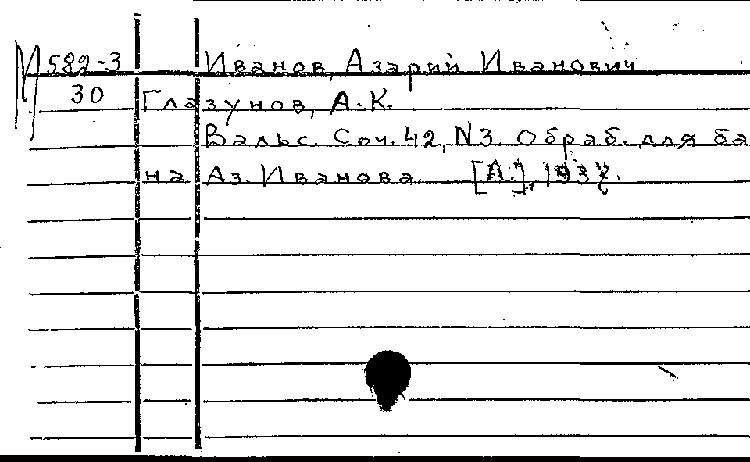 М 582-3
30
Иванов, Азарий Иванович
Глазунов, А.К.
Вальс. Соч. 42, N3. Обраб. для ба
на Аз. Иванова. [Л.], 1937.